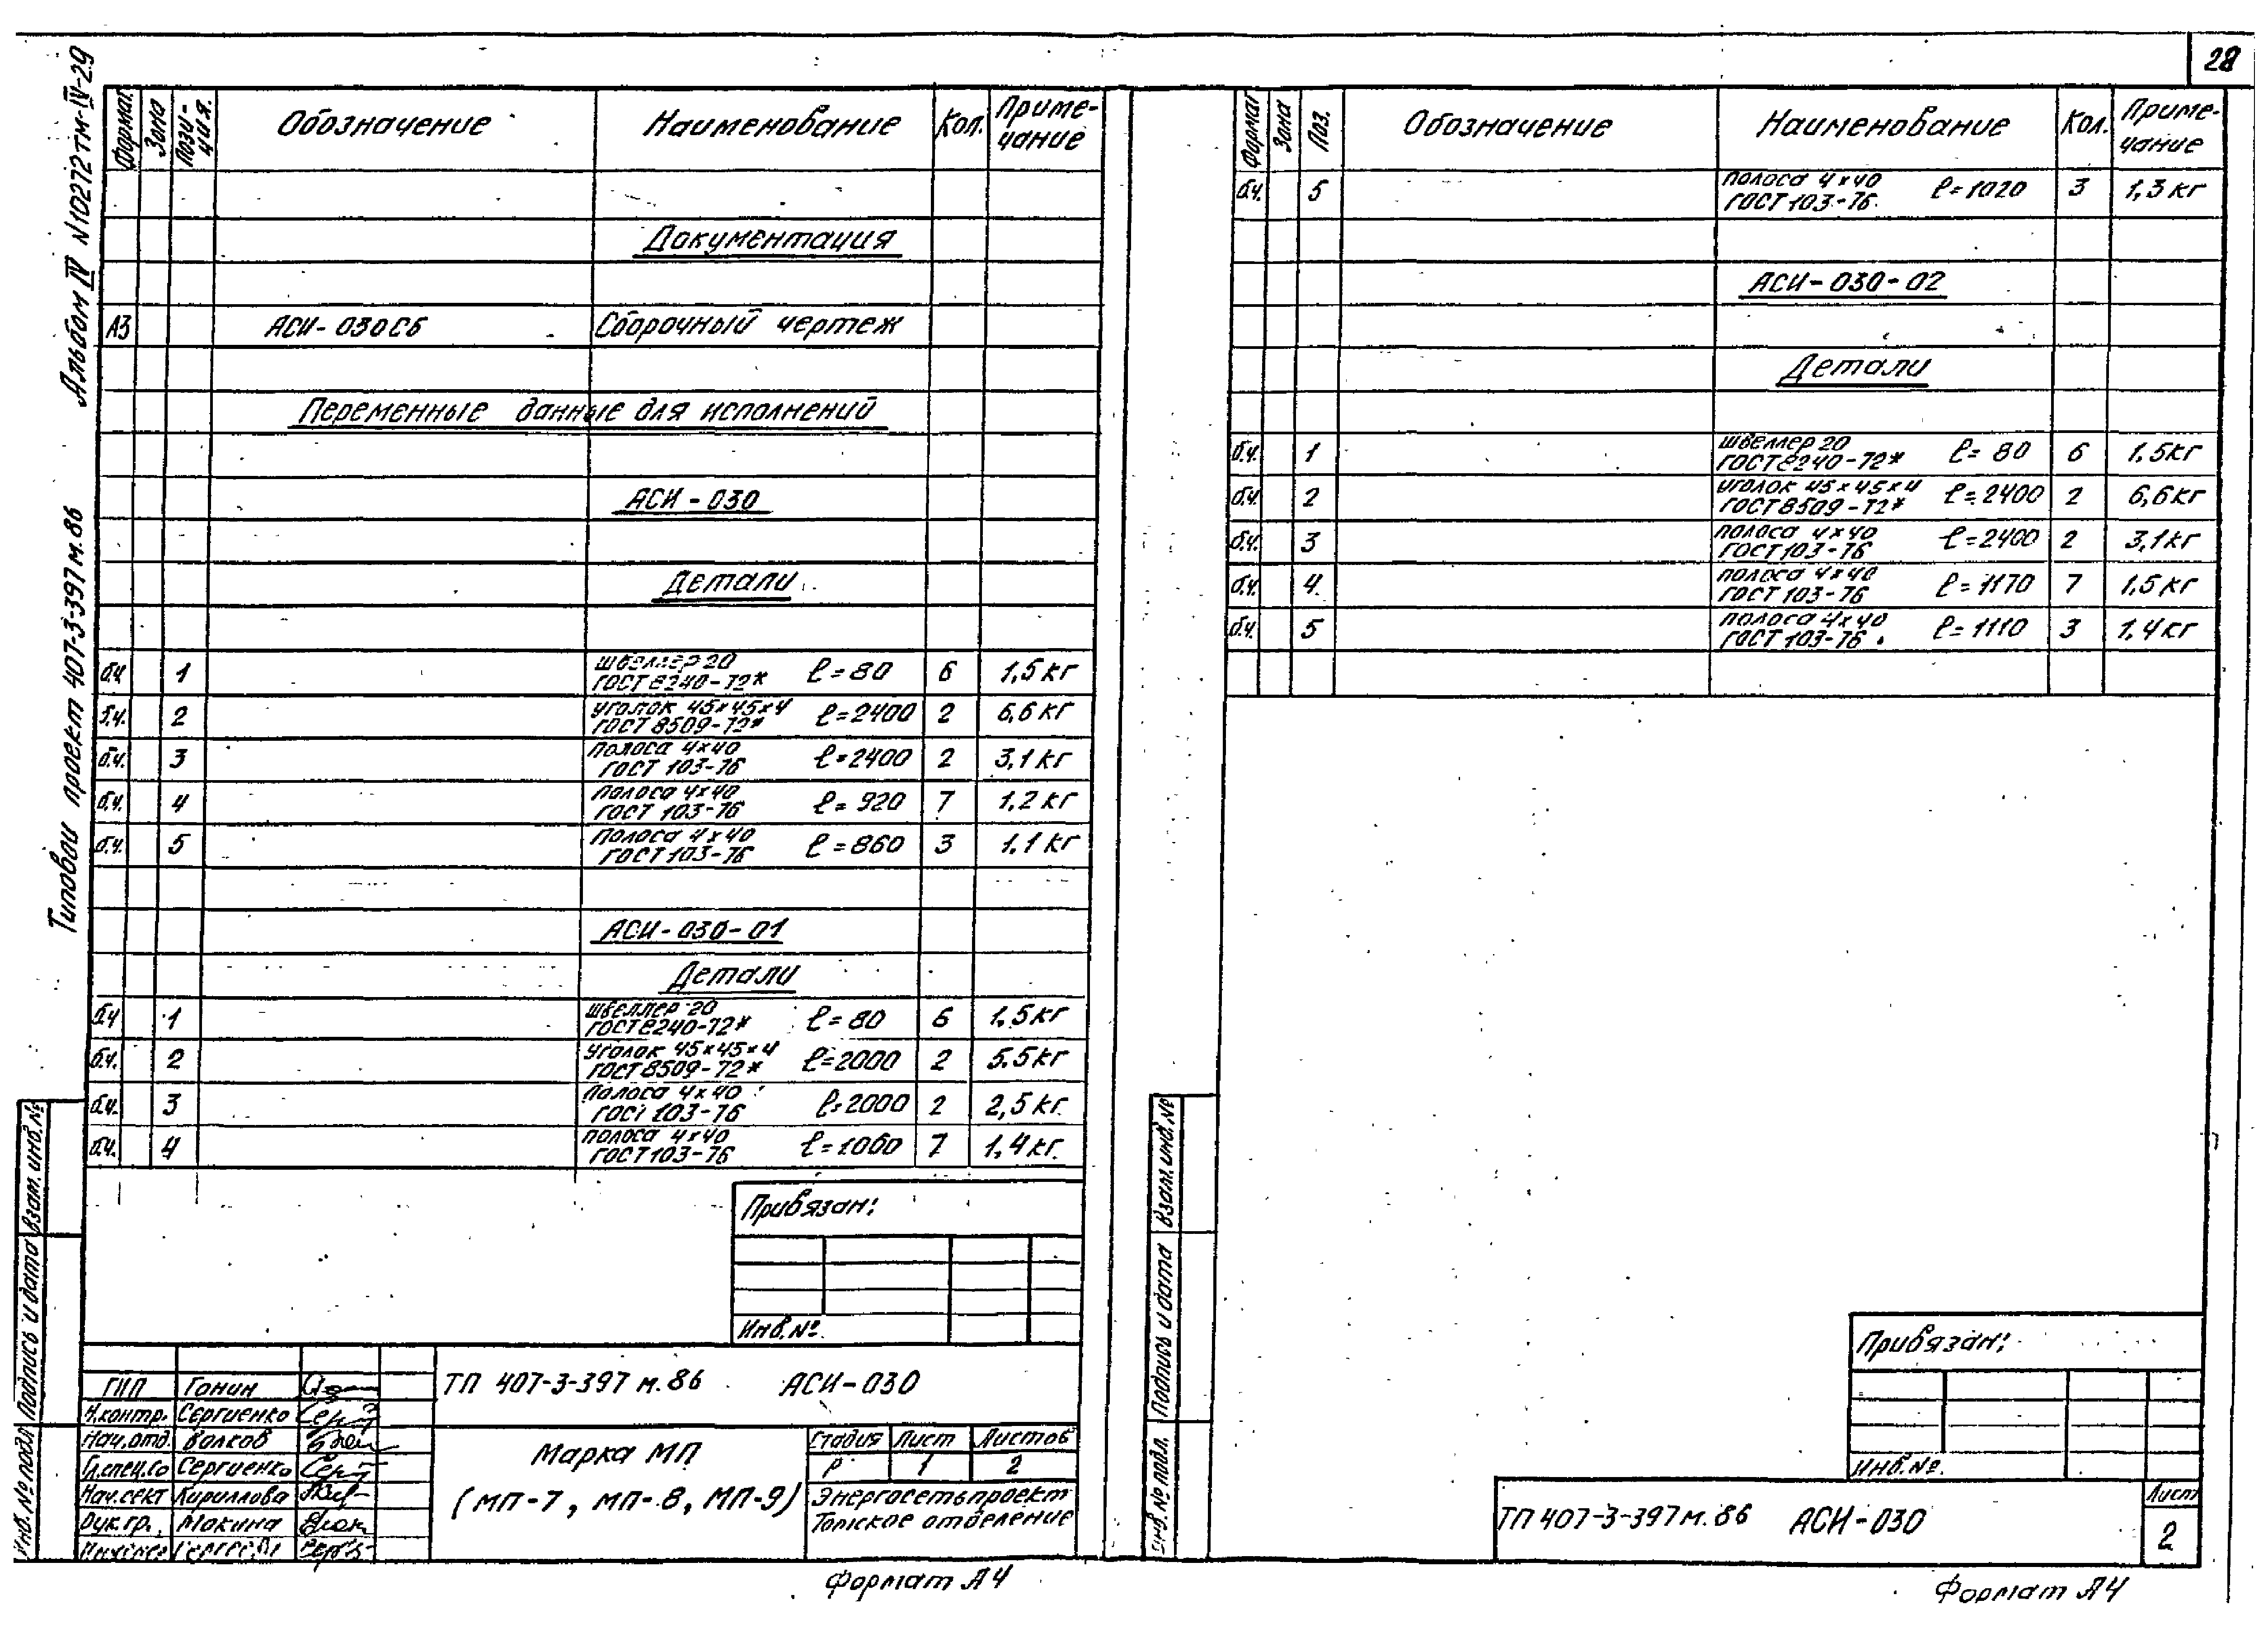 28
Альбом IV N10272тм-IV-29
Типовой проект 407-3-397м.86
Формат Зона Пози-ция. Обозначение Наименование Кол. Приме-чание
Документация
А3 АСИ-030СБ Сборочный чертеж
Переменные данные для исполнений
АСИ-030
Детали
б.ч. 1 швеллер 20 ГОСТ 8240-72* ℓ=80 6 1,5 кг
б.ч. 2 уголок 45х45х4 ГОСТ 8509-72* ℓ=2400 2 6,6 кг
б.ч. 3 полоса 4х40 ГОСТ 103-76 ℓ=2400 2 3,1 кг
б.ч. 4 полоса 4х40 ГОСТ 103-76 ℓ=920 7 1,2 кг
б.ч. 5 полоса 4х40 ГОСТ 103-76 ℓ=860 3 1,1 кг
АСИ-030-01
Детали
б.ч. 1 швеллер 20 ГОСТ 8240-72* ℓ=80 6 1,5 кг
б.ч. 2 уголок 45х45х4 ГОСТ 8509-72* ℓ=2000 2 5.5 кг
б.ч. 3 полоса 4х40 ГОСТ 103-76 ℓ=2000 2 2,5 кг.
б.ч. 4 полоса 4х40 ГОСТ 103-76 ℓ=1060 7 1,4 кг.
Привязан:
Инв.№.
ТП 407-3-397 м.86 АСИ-030
ГИП Гонин
Н.контр. Сергиенко
Нач.отд. Волков
Гл.спец.со Сергиенко
Нач.сект Кириллова
Рук.гр. Мокина
Марка МП
(МП-7, МП-8, МП-9)
Стадия Лист Листов
Р 1 2
Энергосетьпроект
Томское отделение
Взам. инв.№
Подпись и дата
Инв.№ подл
Формат А4
Формат Зона Поз. Обозначение Наименование Кол. Приме-чание
б.ч. 5 полоса 4х40 ГОСТ 103-76 ℓ=1020 3 1,3 кг
АСИ-030-02
Детали
б.ч. 1 швеллер 20 ГОСТ 8240-72* ℓ=80 6 1,5кг
б.ч. 2 уголок 45х45х4 ГОСТ 8509-72* ℓ=2400 2 6,6кг
б.ч. 3 полоса 4х40 ГОСТ 103-76 ℓ=2400 2 3,1кг
б.ч. 4 полоса 4х40 ГОСТ 103-76 ℓ=1170 7 1,5кг
б.ч. 5 полоса 4х40 ГОСТ 103-76 ℓ=1110 3 1,4кг
Взам.инв.№
Подпись и дата
Инв.№ подл.
Привязан:
Инв.№.
ТП 407-3-397м.86 АСИ-030
Лист
2
Формат А4